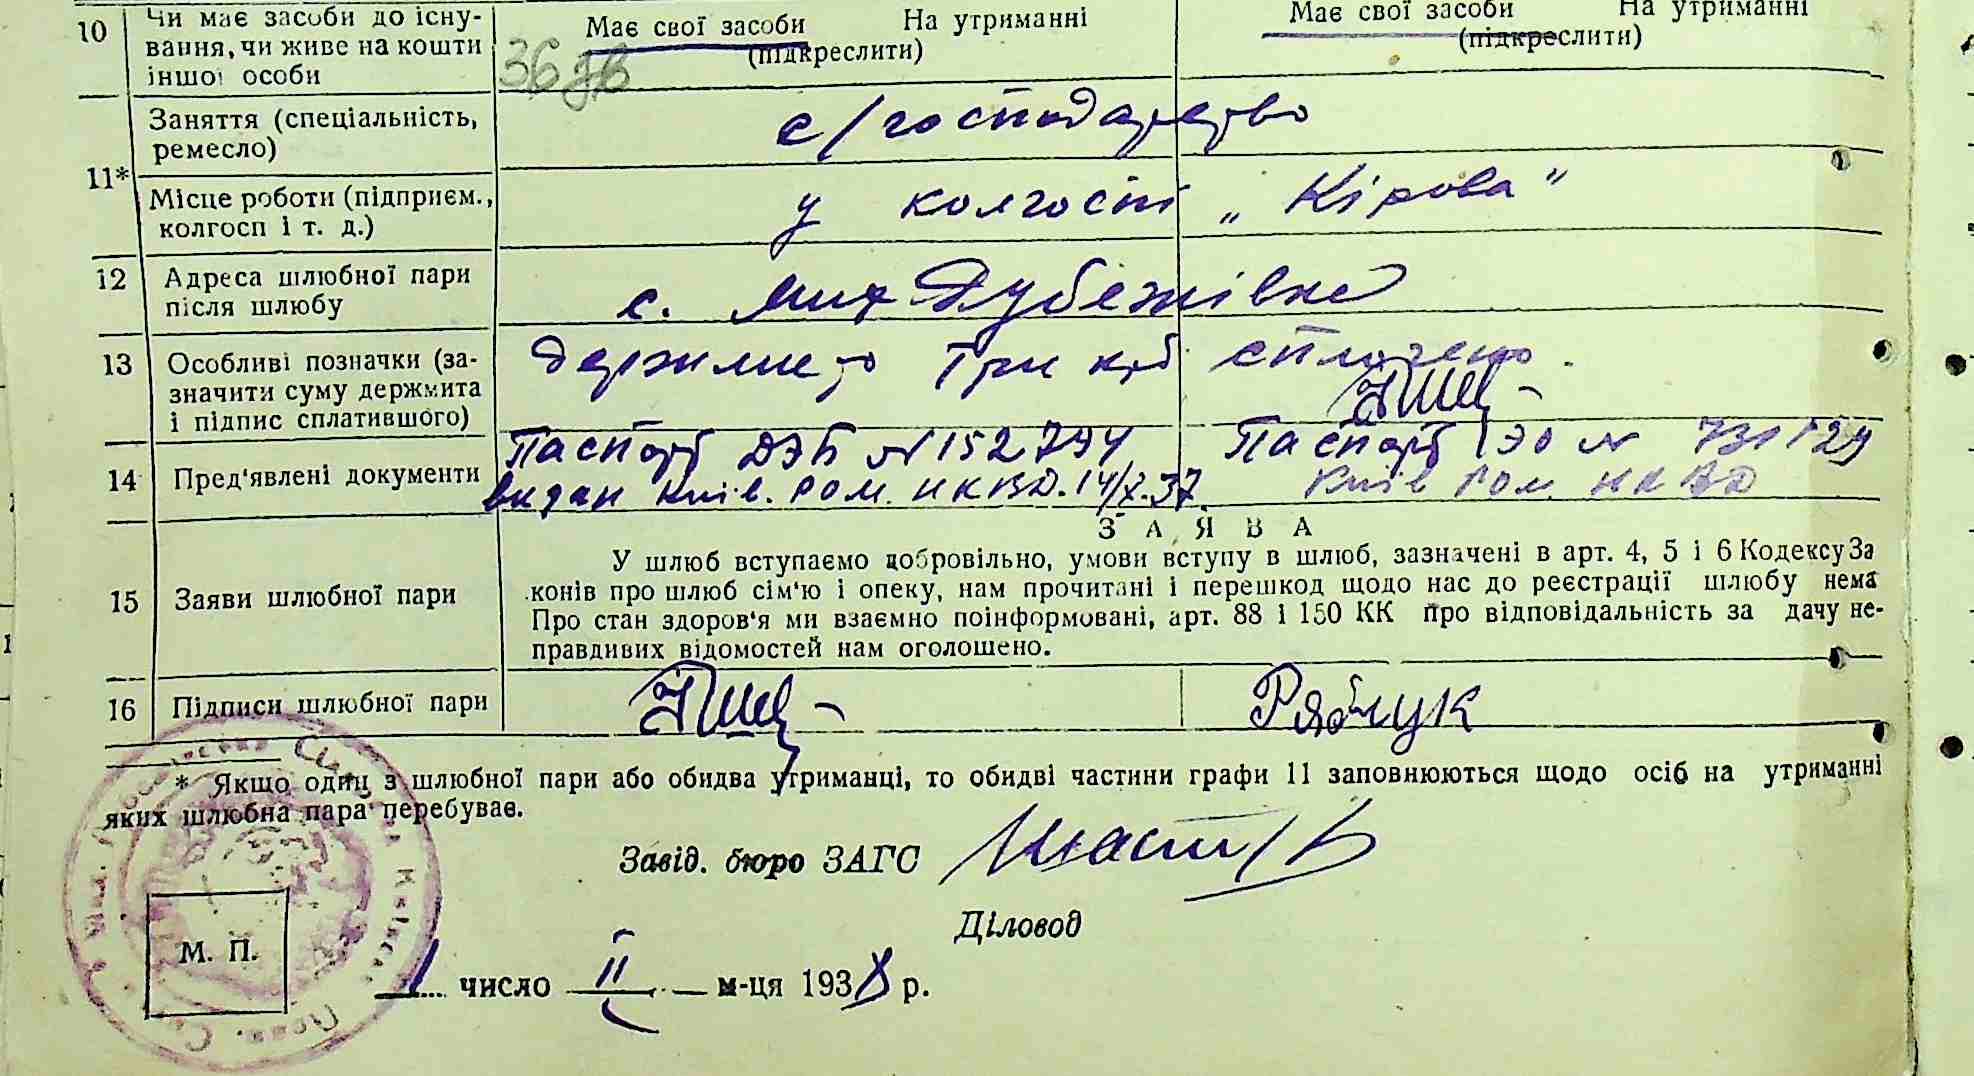 10 Чи має засоби до існу- Має свої засоби На утриманні Має свої засоби На утриманні
вання, чи живе на кошти (підкреслити) (підкреслити)
іншої особи 36
Заняття (спеціальність, с/господарство
ремесло)
11*
Місце роботи (підприєм., у колгоспі „Кірова"
колгосп і т. д.)
12 Адреса шлюбної пари с.
після шлюбу
13 Особливі позначки (за- держмито три крб сплачено.
значити суму держмита
і підпис сплатившого)
14 Пред'явлені документи Паспорт № 152794 Паспорт №
видан Київ. РОМ. НКВД. 14/X.37. Київ РОМ НКВД
ЗАЯВА
15 Заяви шлюбної пари У шлюб вступаємо добровільно, умови вступу в шлюб, зазначені в арт. 4, 5 і 6 Кодексу За
конів про шлюб сім'ю і опеку, нам прочитані і перешкод щодо нас до реєстрації шлюбу нема
Про стан здоров'я ми взаємно поінформовані, арт. 88 і 150 КК про відповідальність за дачу не-
правдивих відомостей нам оголошено.
16 Підписи шлюбної пари Рябчук
* Якщо один з шлюбної пари або обидва утриманці, то обидві частини графи 11 заповнюються щодо осіб на утриманні
яких шлюбна пара перебуває.
Завід. бюро ЗАГС
Діловод
М. П.
1 число II м-ця 1938 р.